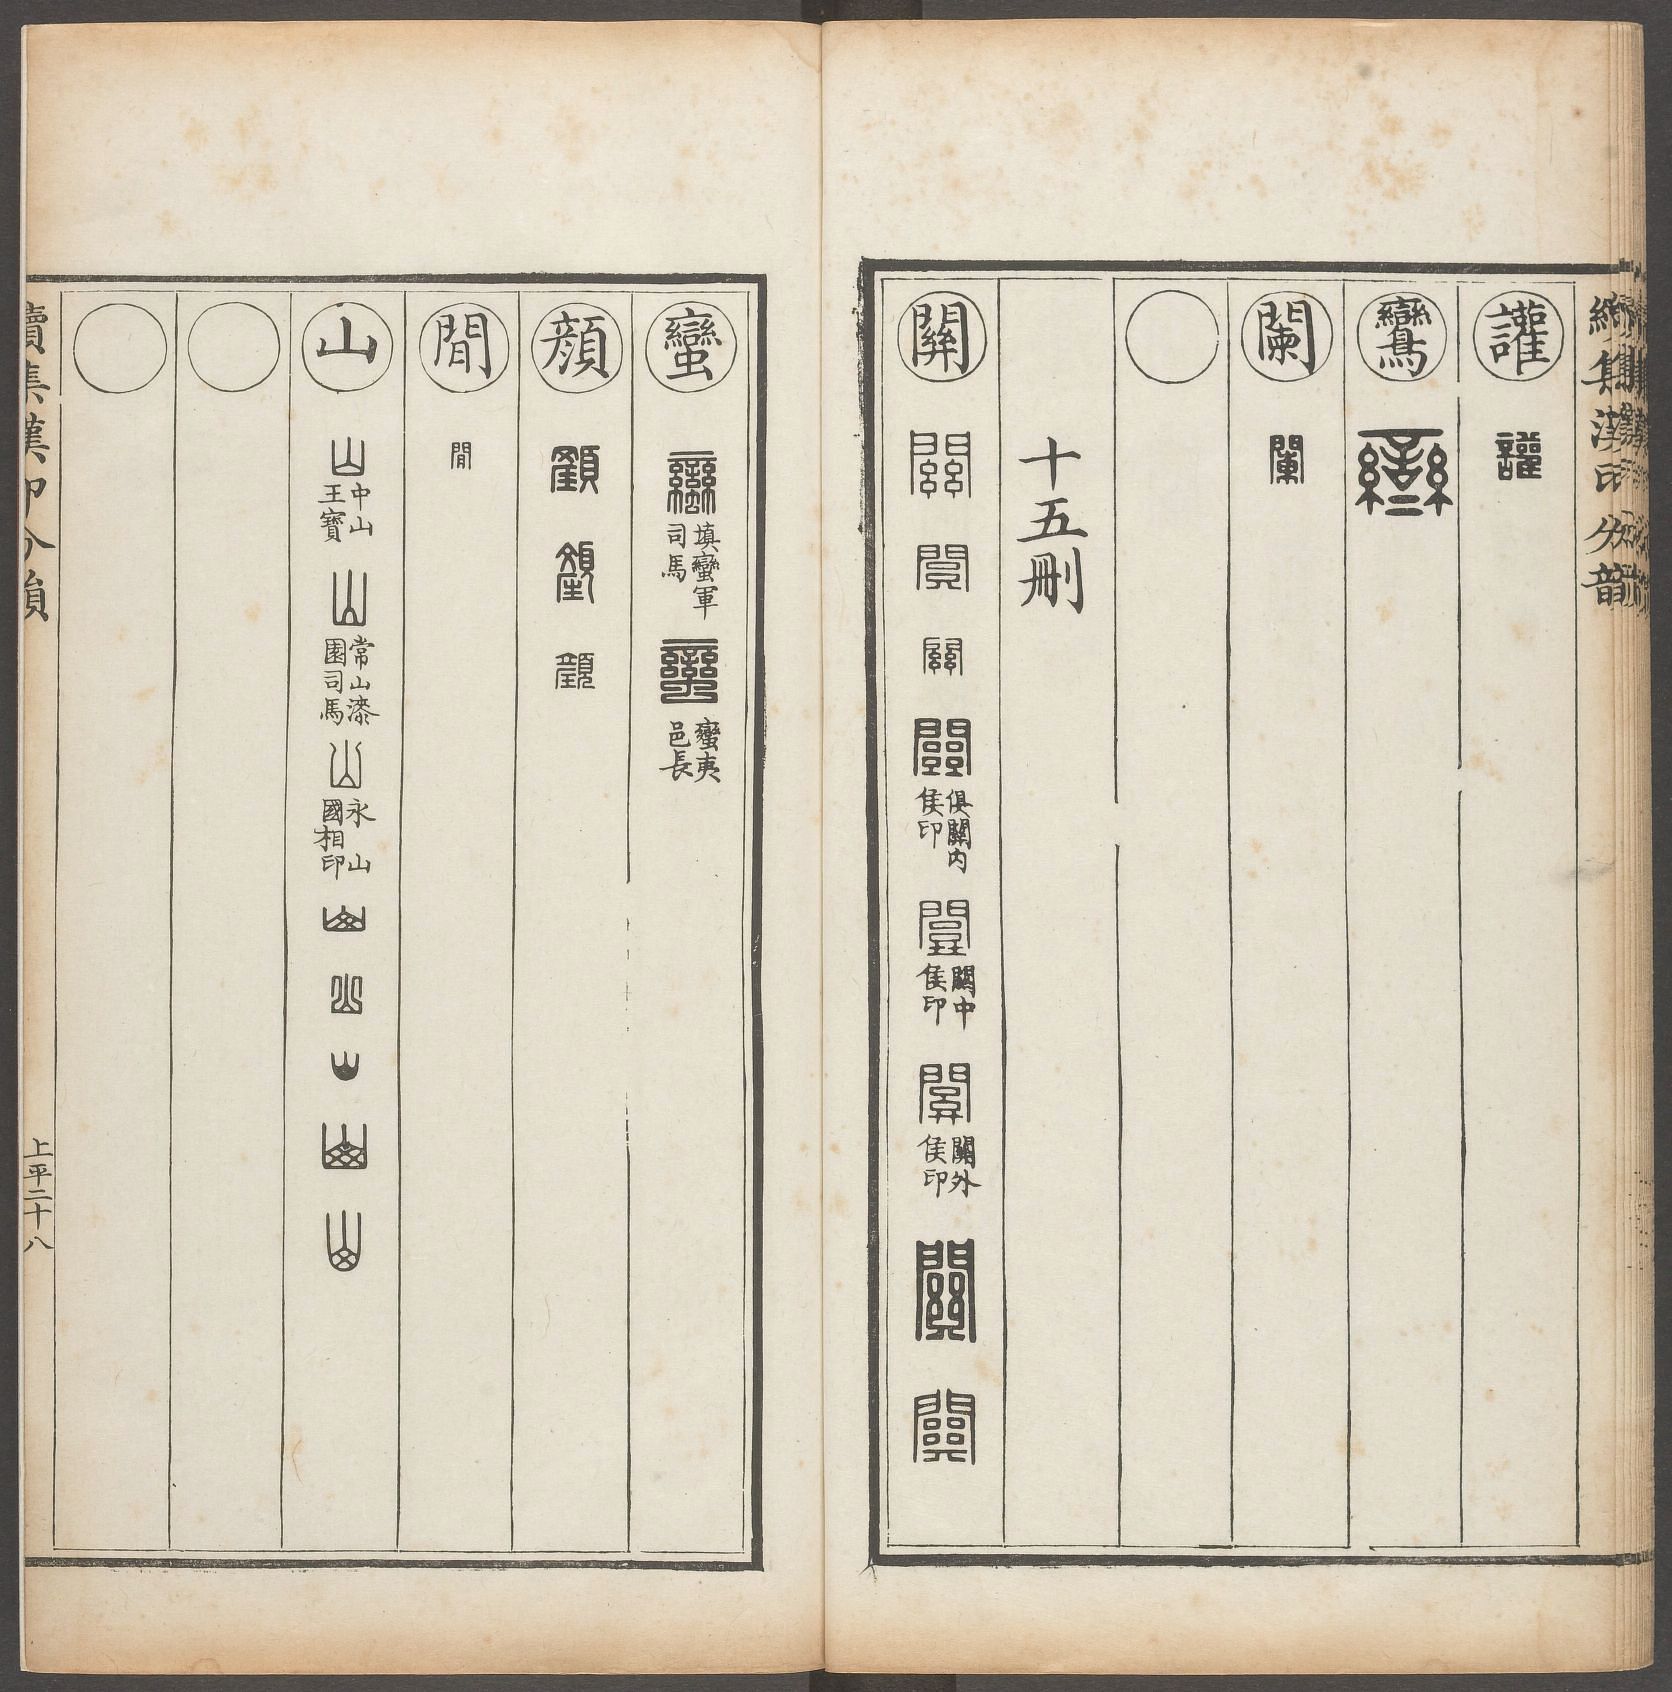 續集漢印分韻
讙 讙
鸞 䜌
闌 闌
十五刪
關 關 關 關 關 俱關內侯印 關 關中侯印 關 關外侯印 關 關
蠻 蠻 填蠻軍司馬 蠻 蠻夷邑長
顏 顏 顏 顏
閒 閒
山 山 中山王寶 山 常山漆園司馬 山 永山國相印 山 山 山 山 山
續集漢印分韻
上平二十八